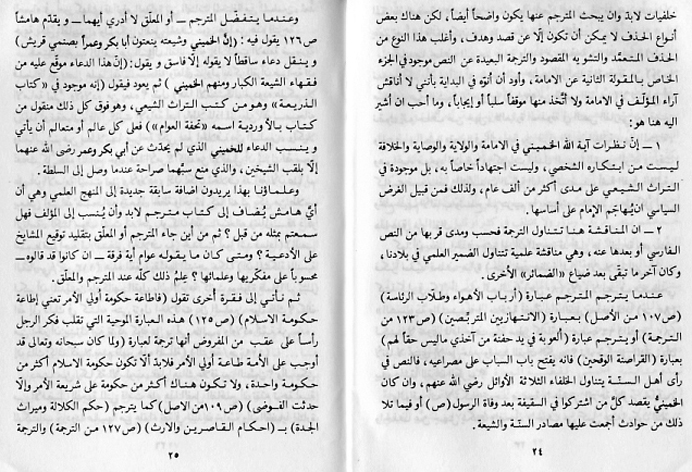 خلفيات لابدّ وان يبحث المترجم عنها يكون واضحاً أيضاً، لكن هناك بعض
أنواع الحذف لا يمكن أن تكون إلّا عن قصد وهدف، وأغلب هذا النوع من
الحذف المتعمَّد والتشويه المقصود والترجمة البعيدة عن النص موجود في الجزء
الخاص بالمقولة الثانية عن الامامة، وأود أن أنوّه في البداية بأنني لا أناقش
آراء المؤلف في الامامة ولا أتّخذ منها موقفاً سلباً أو إيجاباً، وما أحب ان أشير
اليه هنا هو:
١ ـ إنّ نظرات آية الله الخميني في الامامة والولاية والوصاية والخلافة
ليست من ابتكاره الشخصي، وليست اجتهاداً خاصاً به، بل موجودة في
التراث الشيعي على مدى أكثر من ألف عام، ولذلك فمن قبيل الغرض
السياسي ان يُهاجَم الإمام على أساسها.
٢ ـ ان المناقشة هنا تتناول الترجمة فحسب ومدى قربها من النص
الفارسي أو بعدها عنه، وهي مناقشة علمية تتناول الضمير العلمي في بلادنا،
وكان آخر ما تبقّى بعد ضياع «الضمائر» الأخرى.
عندما يترجم المترجم عبارة (أرباب الأهواء وطلّاب الرئاسة)
(ص١٠٧ من الأصل) بعبارة (الانتهازيين المتربّصين) (ص١٢٣ من
الترجمة) أو يترجم عبارة (ألعوبة في يد حفنة من آخذي ماليس حقاً لهم)
بعبارة (القراصنة الوقحين) فانه يفتح باب السباب على مصراعيه، فالنص في
رأى أهل السنّة يتناول الخلفاء الثلاثة الأوائل رضي الله عنهم، وان كان
الخمينيُّ يقصد كلَّ من اشتركوا في السقيفة بعد وفاة الرسول(ص) أو فيما تلا
ذلك من حوادث أجمعت عليها مصادر السنّة والشيعة.
٢٤
وعندما يتفضّل المترجم ـ أو المعلّق لا أدري أيهما ـ و يقدّم هامشاً
ص١٢٦ يقول فيه: (إنَّ الخميني وشيعته ينعتون أبا بكر وعمراً بصنمي قريش)
و ينقل دعاء ساقطاً لا يقوله إلّا فاسق و يقول: (إنَّ هذا الدعاء موقّع عليه من
فقهاء الشيعة الكبار ومنهم الخميني) ثم يعود فيقول (إنه موجود في «كتاب
الذريعة» وهو من كتب التراث الشيعي، وهو فوق كل ذلك منقول من
كتاب بالأوردية اسمه «تحفة العوام») فعلى كل عالم أو متعالم أن يأتي
و ينسب الدعاء للخميني الذي لم يحدّث عن أبي بكر وعمر رضي الله عنهما
إلّا بلقب الشيخين، والذي منع سبّهما صراحة عندما وصل إلى السلطة.
وعلماؤنا بهذا يريدون اضافة سابقة جديدة إلى المنهج العلمي وهي أن
أيَّ هامش يُضاف إلى كتاب مترجم لابد وأن يُنسب إلى المؤلف فهل
سمعتم بمثله من قبل؟ ثم من أين جاء المترجم أو المعلّق بتقليد توقيع المشايخ
على الأدعية؟ ومتى كان ما يقوله عوام أية فرقة ـ ان كانوا قد قالوه ـ
محسوباً على مفكّريها وعلمائها؟ عِلمُ ذلك كلّه عند المترجم والمعلّق.
ثم نأتي إلى فقرة أُخرى تقول (فاطاعة حكومة أولي الأمر تعني إطاعة
حكومة الاسلام) (ص١٢٥) هذه العبارة الموحية التي تقلب فكر الرجل
رأساً على عقب من المفروض أنها ترجمة لعبارة (ولما كان سبحانه وتعالى قد
أوجب على الأمة طاعة أولي الأمر فلابدّ ألّا تكون حكومة الاسلام أكثر من
حكومة واحدة، ولا تكون هناك أكثر من حكومة على شريعة الأمر وإلّا
حدثت الفوضى) (ص١٠٩من الاصل) كما يترجم (حكم الكلالة وميراث
الجدة) بـ (احكام القاصرين والارث) (ص١٢٧ من الترجمة) والترجمة
٢٥